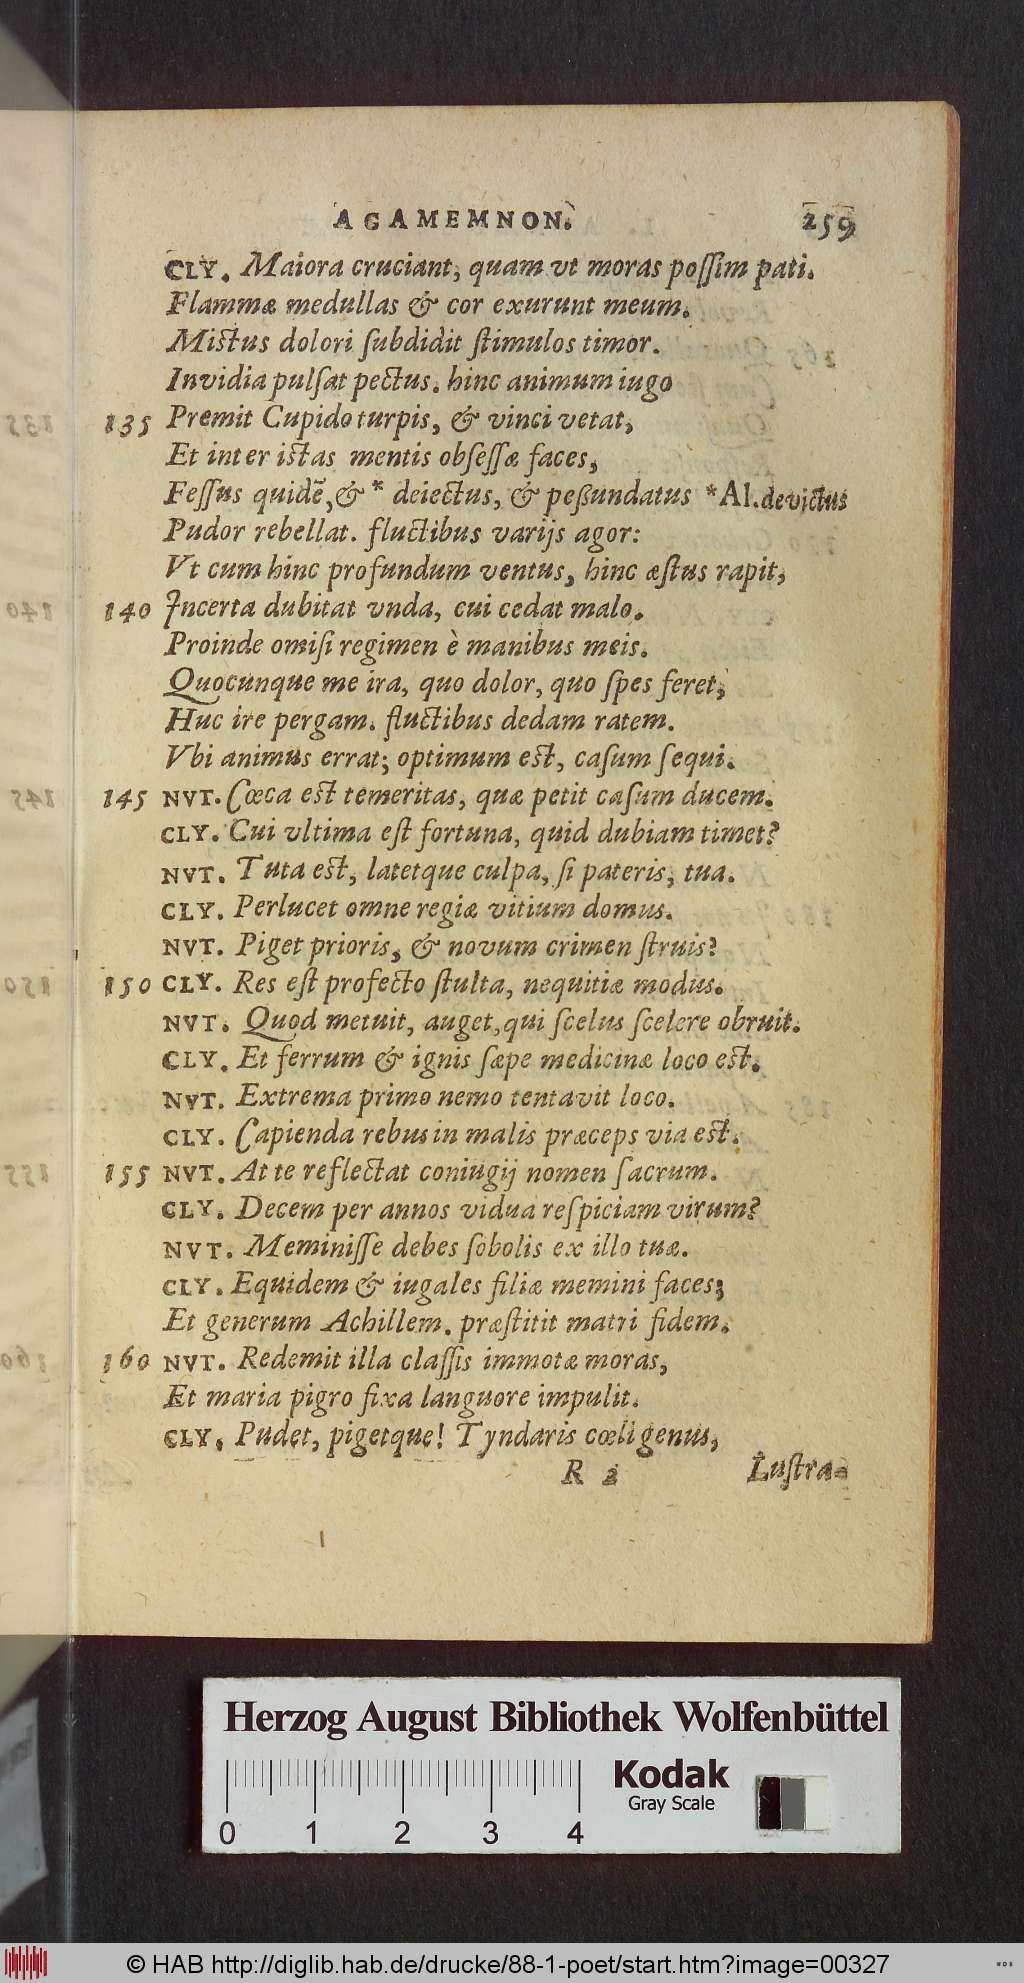 AGAMEMNON. 259
CLY. Maiora cruciant, quam vt moras poſſim pati.
Flammæ medullas & cor exurunt meum.
Mistus dolori ſubdidit ſtimulos timor.
Invidia pulſat pectus. hinc animum iugo
135 Premit Cupido turpis, & vinci vetat,
Et inter istas mentis obſeſſæ faces,
Feſſus quidē, & * deiectus, & peßundatus *Al. devictus
Pudor rebellat. fluctibus varijs agor:
Vt cum hinc profundum ventus, hinc æstus rapit,
140 Incerta dubitat vnda, cui cedat malo.
Proinde omiſi regimen è manibus meis.
Quocunque me ira, quo dolor, quo ſpes feret,
Huc ire pergam. fluctibus dedam ratem.
Vbi animus errat; optimum est, caſum ſequi.
145 NVT. Cœca est temeritas, quæ petit caſum ducem.
CLY. Cui vltima eſt fortuna, quid dubiam timet?
NVT. Tuta est, latetque culpa, ſi pateris, tua.
CLY. Perlucet omne regiæ vitium domus.
NVT. Piget prioris, & novum crimen ſtruis?
150 CLY. Res eſt profecto ſtulta, nequitiæ modus.
NVT. Quod metuit, auget, qui ſcelus ſcelere obruit.
CLY. Et ferrum & ignis ſæpe medicinæ loco est.
NVT. Extrema primo nemo tentavit loco.
CLY. Capienda rebus in malis præceps via est.
155 NVT. At te reflectat coniugij nomen ſacrum.
CLY. Decem per annos vidua reſpiciam virum?
NVT. Meminiſſe debes ſobolis ex illo tuæ.
CLY. Equidem & iugales filiæ memini faces;
Et generum Achillem. præſtitit matri fidem.
160 NVT. Redemit illa claſſis immotæ moras,
Et maria pigro fixa languore impulit.
CLY. Pudet, pigetque! Tyndaris cœli genus,
R 2 Luſtra-
Herzog August Bibliothek Wolfenbüttel
Kodak
Gray Scale
0 1 2 3 4
© HAB http://diglib.hab.de/drucke/88-1-poet/start.htm?image=00327